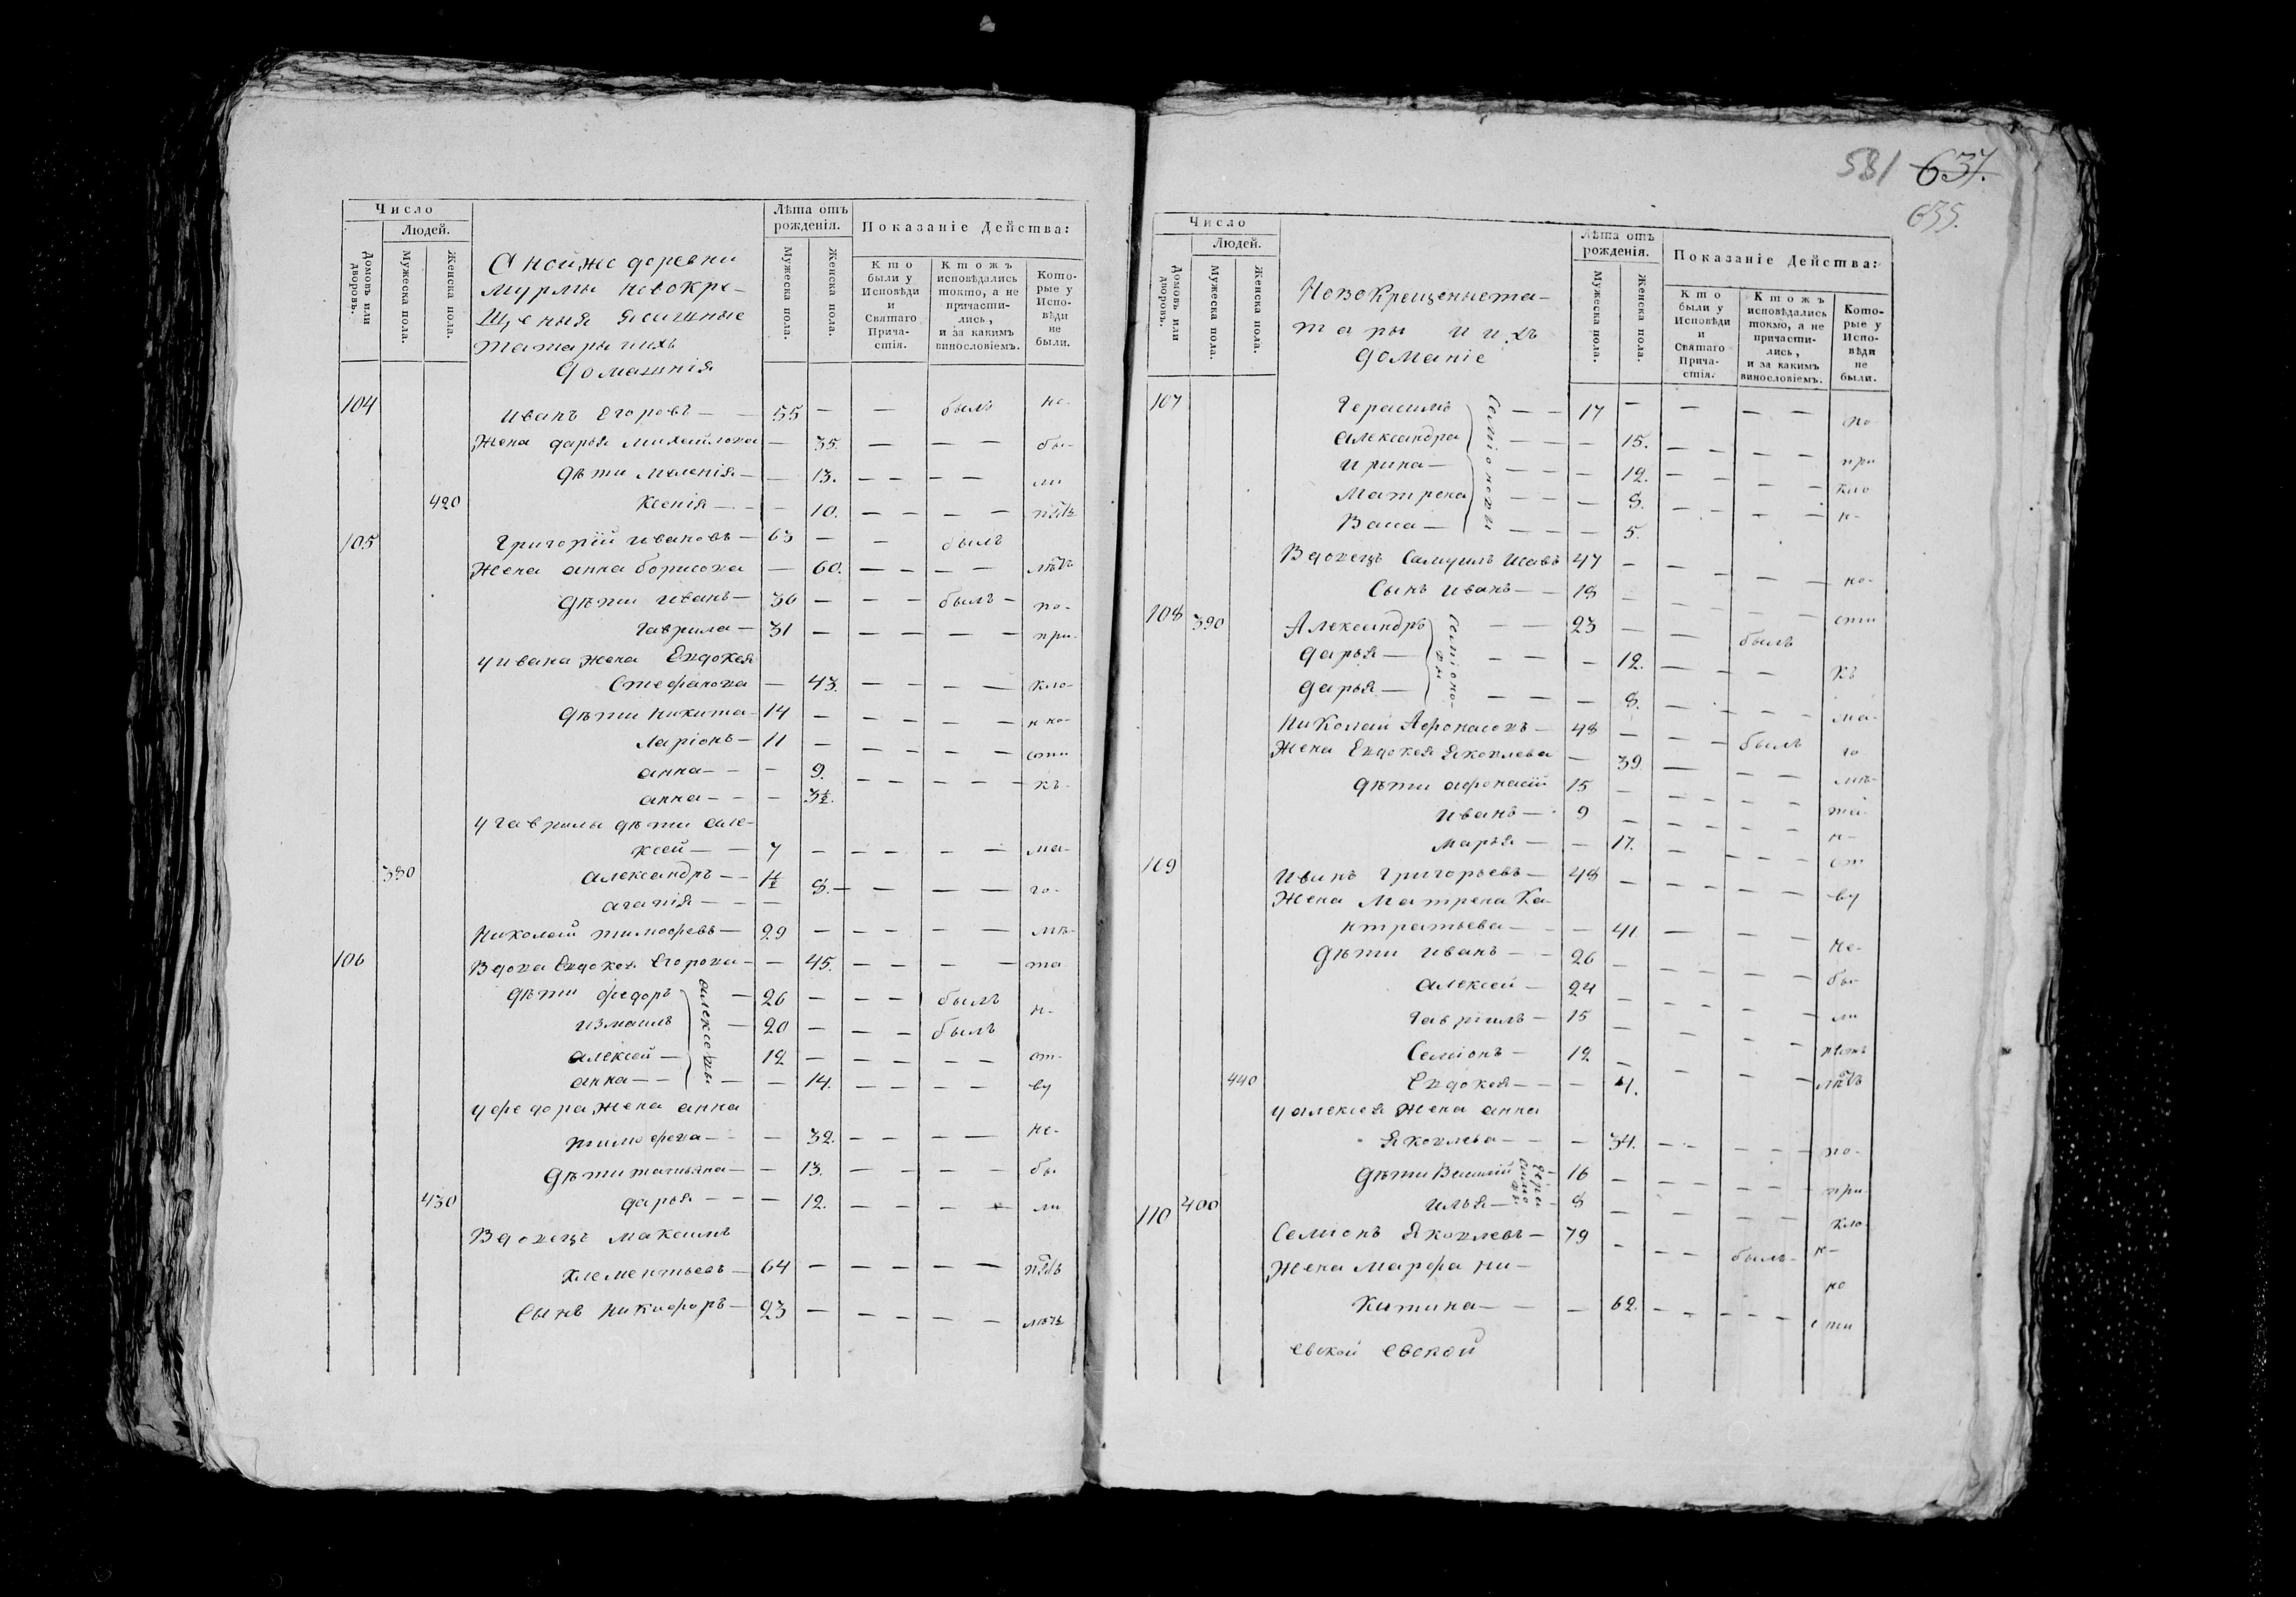 Число
Людей.
Домовъ или дворовъ.
Мужеска пола.
Женска пола.
Лѣта отъ рожденія.
Мужеска пола.
Женска пола.
Показаніе Действа:
Кто были у Исповѣди и Святаго Прича-стія.
Ктожъ исповѣдались токмо, а не причасти-лись, и за какимъ винословіемъ.
Кото-рые у Испо-вѣди не были.
мурмы новокре-
щеныя ясашные
татары иихъ
домашнія
104 Иванъ Егоровъ — — 55 — — былъ не-
Жена дарья михайлова — 35. — — — бы-
дѣти — — 13. — — — — ли
420 Ксенія — — — 10. — — — —
105 Григорій ивановъ — 63 — — былъ
Жена анна борисова — 60. — — — —
дѣти иванъ — 36 — — — былъ — по-
Гаврила — 31 — — — — — при-
у ивана жена Евдокея
Стефанова — 43. — — — — кло-
дѣти никита — 14 — — — — — нно-
Ларіонъ — 11 — — — — — сти
анна — — — 9. — — — — къ-
анна — — — 3½.
у гаврилы дѣти але-
ксей — — 7 — — — — — ма-
380 александръ — — 1½ — — — го-
агапія — — — 8. —
Николай тимофеевъ — 29 — — — — — мѣ-
106 Вдова Евдокея Егорова — — 45. — — — — та
дѣти федоръ — 26 — — — былъ н-
измаилъ — 20 — — — былъ
алексей — 12 — — — — — от-
анна — — — 14. — — — — ву
алексеевы
у федора жена анна
тимофеева — — — 32. — — — — не-
дѣти татьяна — — 13. — — — — бы
430 дарья — — — 12. — — — — ли
Вдовецъ максимъ
клементьевъ — 64 — — — — —
сынъ никифоръ — 23 — — — — —
581 637.
635.
Число
Людей.
Домовъ или дворовъ.
Мужеска пола.
Женска пола.
Лѣта отъ рожденія.
Мужеска пола.
Женска пола.
Показаніе Действа:
Кто были у Исповѣди и Святаго Прича-стія.
Ктожъ исповѣдались токмо, а не причасти-лись, и за какимъ винословіемъ.
Кото-рые у Испо-вѣди не были.
Новокрещеныета-
тары и ихъ
доманіе
107 Герасимъ — — 17 — — — — по-
александра — — — 15. — — — — при
ирина — — — 12. — — — — кло
Матрена — — — 8. — — — — н-
Васа — — — 5.
Семіоновы
Вдовецъ Самуилъ Исавъ 47 — — — — — но-
Сынъ иванъ — — 18 — — — — — сти
108 390 Александръ — — 23 — — былъ
дарья — — — — 12. — — — — къ
дарья — — — — 8. — — — — ма-
Семіоновы
Николай Афонасовъ — 48 — — — былъ го
Жена Евдокея Яковлева — 39. — — — мѣ-
дѣти афонасій 15 — — — — — та-
иванъ — 9 — — — — — н-
марья — — 17. — — — — от
109 Иванъ Григорьевъ — 48 — — — — — ву
Жена Матрена Ка-
нтратьева — — — 41. — — — не-
дѣти иванъ — — 26 — — — — — бы
алексей — 24 — — — — — ли
Гавріилъ — 15 — — — — —
Семіонъ — 12 — — — — —
440 Евдокея — — — 4.
у алексея жена анна
Яковлева — — — 34. — — — — по-
дѣти Василій — 16 — — — — — при
400 илья — — 8 — — — — кло
110 Семіонъ Яковлевъ — 79 — — — былъ — н-
Жена Марфа ни- но
китина — — — 62. — — — — сти
евской евской